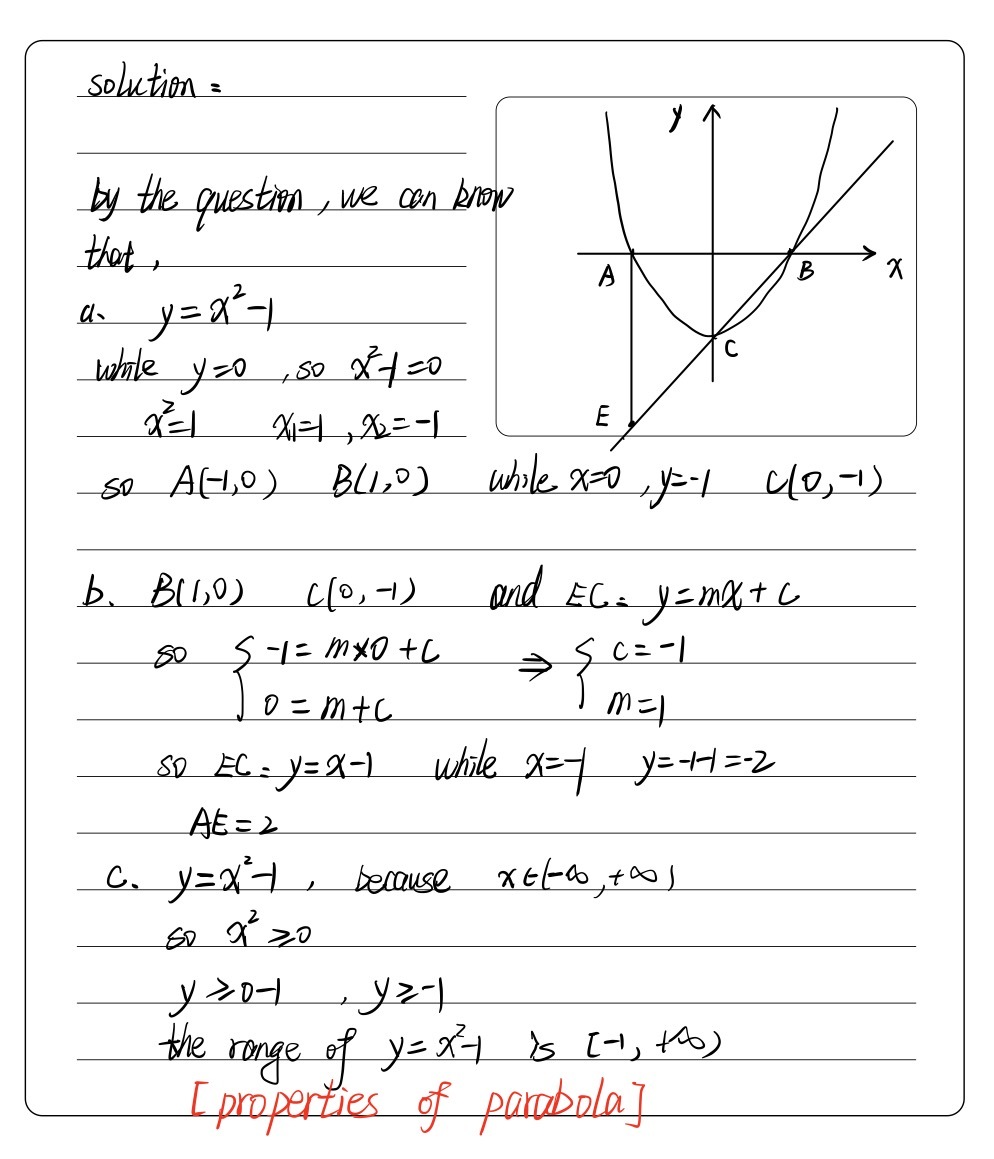 solution:
by the question, we can know
that,
a. y=x²-1
while y=0 , so x²-1=0
x²=1 x₁=1, x₂=-1
so A(-1,0) B(1,0) while x=0, y=-1 C(0,-1)
y
A
B
x
C
E
b. B(1,0) C(0,-1) and EC: y=mx+c
so { -1=m×0+c ⇒ { c=-1
0=m+c m=1
so EC: y=x-1 while x=-1 y=-1-1=-2
AE=2
c. y=x²-1, because x∈(-∞,+∞)
so x²≥0
y≥0-1 , y≥-1
the range of y=x²-1 is [-1,+∞)
[properties of parabola]